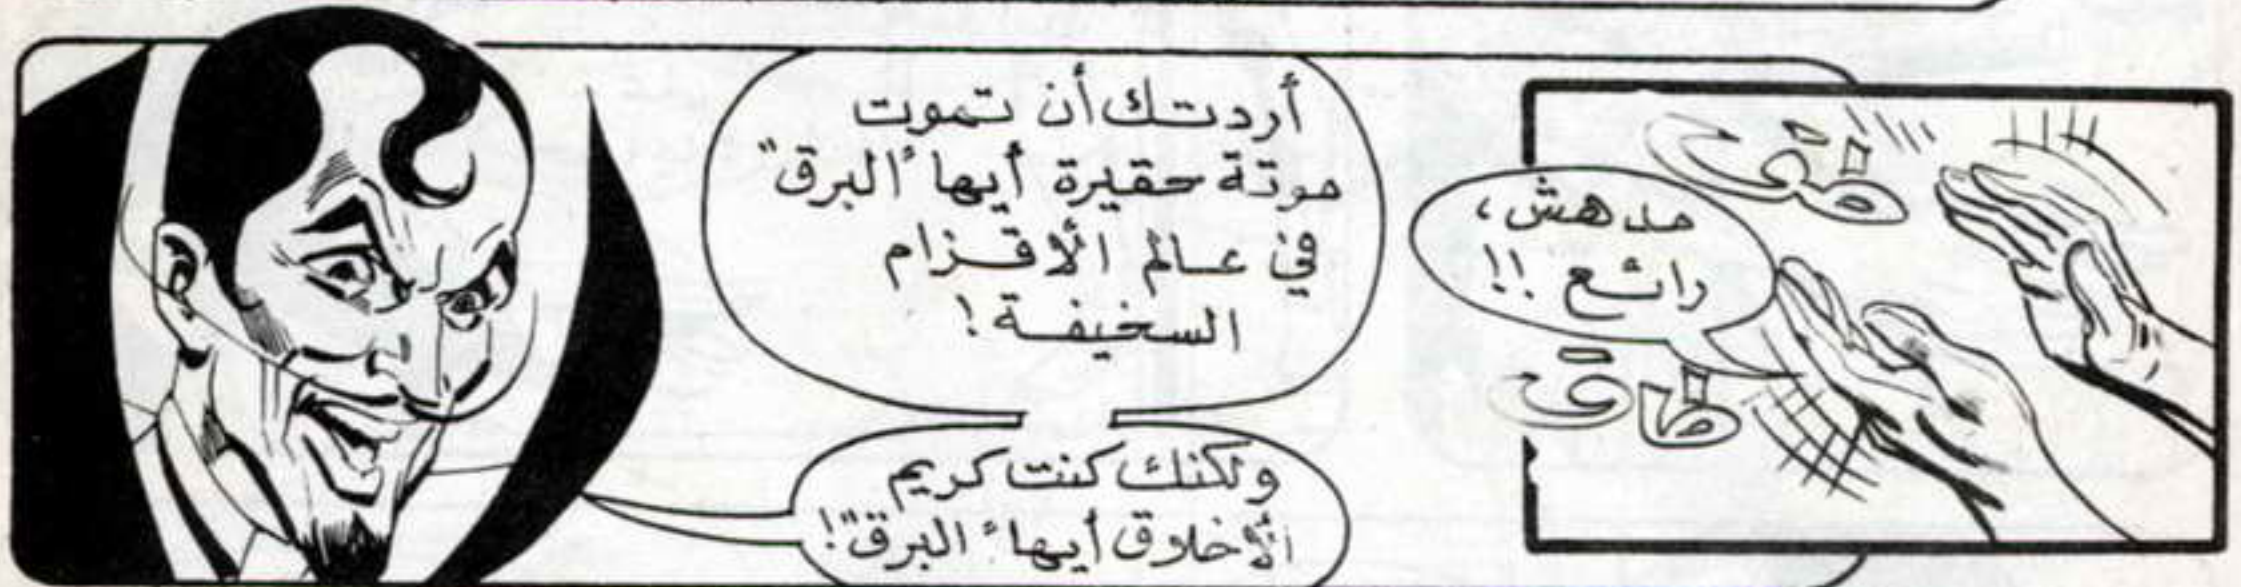 طق
مدهش،
رائع !!
طاق
أردتك أن تموت
موتة حقيرة أيها "البرق"
في عالم الأقزام
السخيفة !
ولكنك كنت كريم
الأخلاق أيها "البرق"!